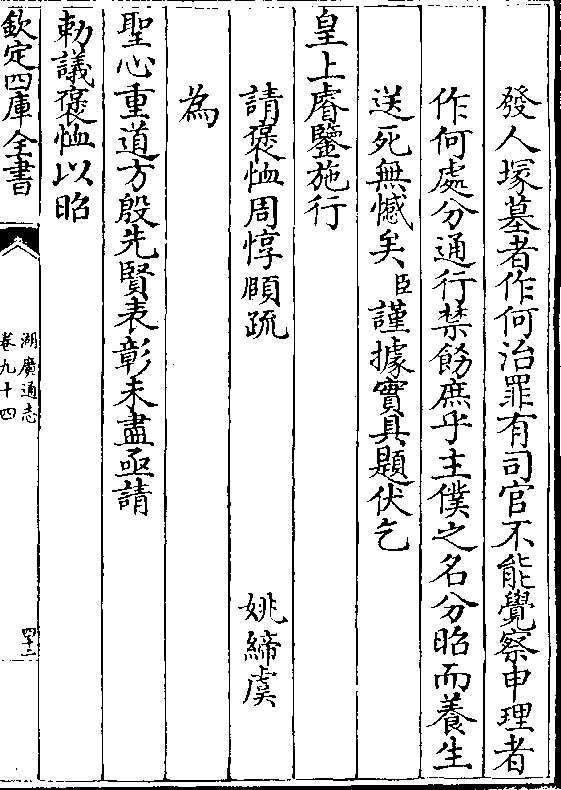 發人塚墓者作何治罪有司官不能覺察申理者
作何處分通行禁飭庶乎主僕之名分昭而養生
送死無憾矣臣謹據實具題伏乞
皇上睿鑒施行
請褒恤周惇頤疏 姚締虞
為
聖心重道方殷先賢表彰未盡亟請
勅議褒恤以昭
欽定四庫全書
湖廣通志
卷九十四
四十二